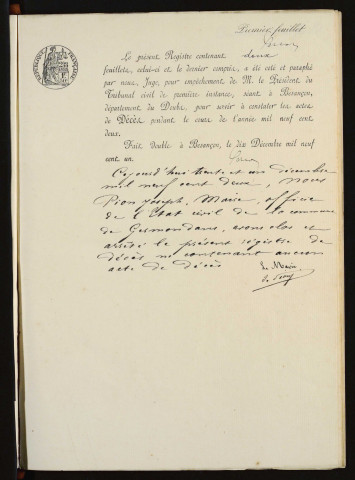 Premier feuillet
Le présent Registre contenant deux
feuillets, celui-ci et le dernier compris, a été coté et paraphé
par nous, Juge, pour empêchement de M. le Président, du
Tribunal civil de première instance, séant à Besançon,
département du Doubs, pour servir à constater les actes
de Décès pendant le cours de l'année mil neuf cent
deux.
Fait double à Besançon, le dix Décembre mil neuf
cent un.
Aujourd'hui trente et un décembre
mil neuf cent deux, nous
Pion Joseph, Maire, officier
de l'Etat civil de la commune
de Germondans, avons clos et
arrêté le présent registre de
décès ne contenant aucun
acte de décès
Le Maire
J. Pion